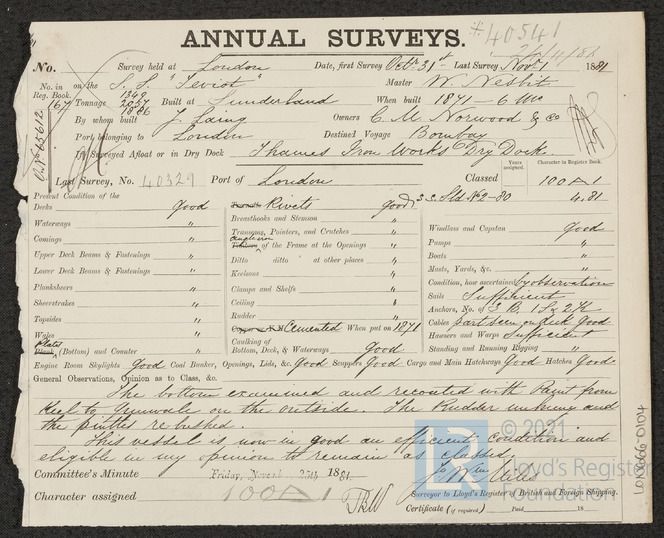 ANNUAL SURVEYS.
#40541
No. Survey held at London Date, first Survey Octr 31st Last Survey Novr 1 1881
No. in Reg. Book. on the S.S. "Teviot" Master W. Nesbit
167 Tonnage 1349 2057 1886 Built at Sunderland When built 1871 - 6 mo
By whom built J. Laing Owners C. M. Norwood & Co
Port belonging to London Destined Voyage Bombay
If Surveyed Afloat or in Dry Dock Thames Iron Works Dry Dock
O.No 65612
Last Survey, No. 40329 Port of London Classed Years assigned. Character in Register Book. 100 A 1
S.S. Sld. No 2-80 4,81
Present Condition of the
Decks Good
Waterways "
Comings "
Upper Deck Beams & Fastenings "
Lower Deck Beams & Fastenings "
Planksheers "
Sheerstrakes "
Topsides "
Wales "
Plates (Bottom) and Counter "
Rivets Good
Breasthooks and Stemson "
Transoms, Pointers, and Crutches "
Angle iron of the Frame at the Openings "
Ditto ditto at other places "
Keelsons "
Clamps and Shelfs "
Ceiling "
Rudder "
Cemented When put on 1871
Caulking of Bottom, Deck, & Waterways Good
Windlass and Capstan Good
Pumps "
Boats "
Masts, Yards, &c. "
Condition, how ascertained by observation
Sails Sufficient
Anchors, No. of 3 B. 1 S. 2 K
Cables part seen on deck Good
Hawsers and Warps Sufficient
Standing and Running Rigging "
Engine Room Skylights Good Coal Bunker, Openings, Lids, &c. Good Scuppers Good Cargo and Main Hatchways Good Hatches Good
General Observations, Opinion as to Class, &c.
The bottom examined and recoated with Paint from
Keel to Gunwale on the outside. The Rudder unhung and
the pintles rebushed.
This vessel is now in good an efficient condition and
eligible in my opinion to remain as classed.
Committee's Minute Friday, Novemb 25th 1881
Wm Mills
Character assigned 100 A 1
Surveyor to Lloyd's Register of British and Foreign Shipping.
Certificate (if required) Paid 18
© 2021
LR
Lloyd's Register
Foundation
LON666-0104